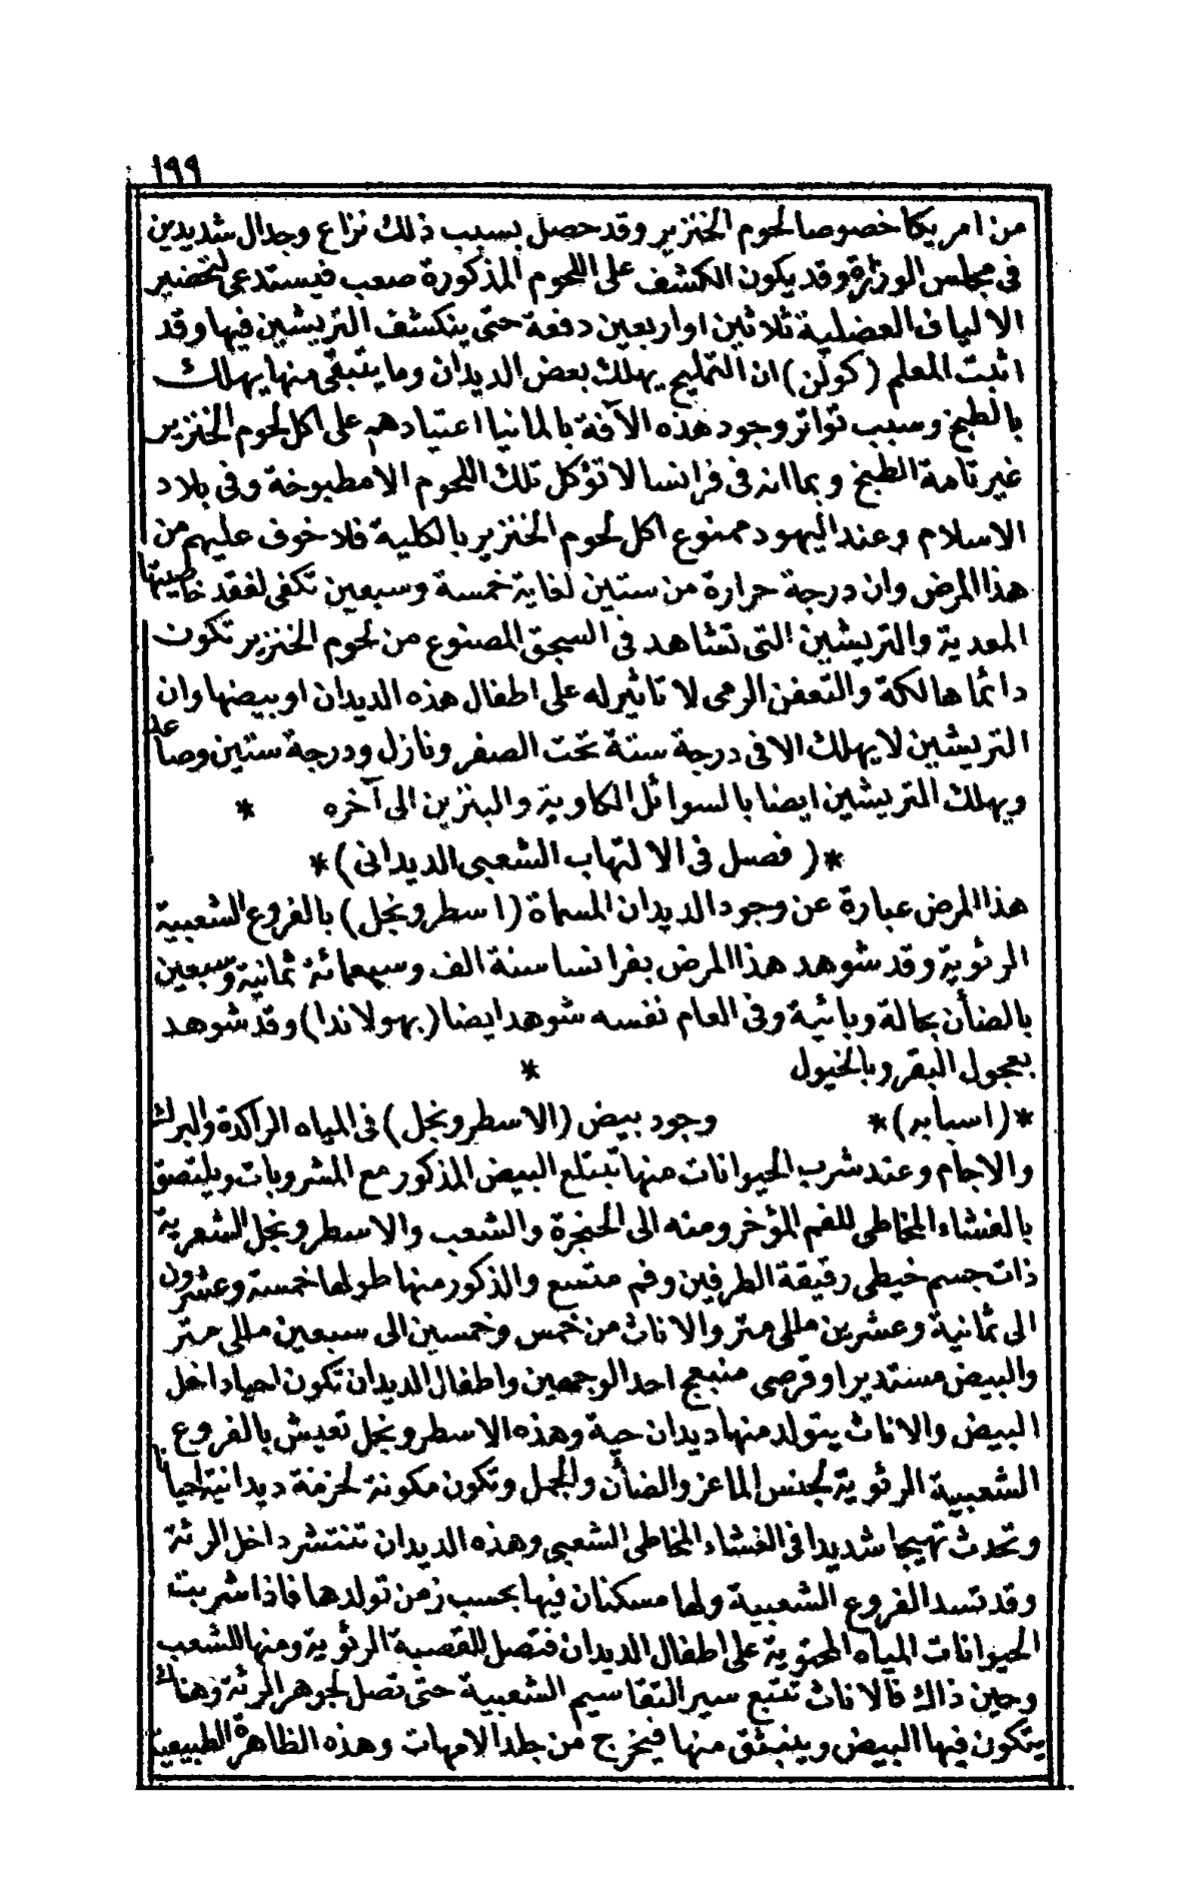 ١٩٩
من امريكا خصوصا لحوم الخنزير وقد حصل بسبب ذلك نزاع وجدال شديدين
فى مجلس الوزارة وقد يكون الكشف على اللحوم المذكورة صعب فيستدعى لتحضير
الالياف العضلية ثلاثين او اربعين دفعة حتى ينكشف التريشين فيها وقد
اثبت المعلم (كولن) ان التمليح يهلك بعض الديدان وما يتبقى منها يهلك
بالطبخ وسبب تواتر وجود هذه الآفة بالمانيا اعتيادهم على اكل لحوم الخنزير
غير تامة الطبخ وبما انه فى فرانسا لا تؤكل تلك اللحوم الا مطبوخة وفى بلاد
الاسلام وعند اليهود ممنوع اكل لحوم الخنزير بالكلية فلا خوف عليهم من
هذا المرض وان درجة حرارة من ستين لغاية خمسة وسبعين تكفى لفقد خاصيتها
المعدية والتريشين التى تشاهد فى السجق المصنوع من لحوم الخنزير تكون
دائما هالكة والتعفن الرمى لا تاثير له على اطفال هذه الديدان او بيضها وان
التريشين لا يهلك الا فى درجة ستة تحت الصفر ونازل ودرجة ستين وصاعد
ويهلك التريشين ايضا بالسوائل الكاوية والبنزين الى آخره *
*( فصل فى الالتهاب الشعبى الديدانى )*
هذا المرض عبارة عن وجود الديدان المسماة (اسطرونجل) بالفروع الشعبية
الرئوية وقد شوهد هذا المرض بفرانسا سنة الف وسبعمائة ثمانية وسبعين
بالضأن بحالة وبائية وفى العام نفسه شوهد ايضا (بهولاندا) وقد شوهد
بعجول البقر وبالخيول *
*(اسبابه)* وجود بيض (الاسطرونجل) فى المياه الراكدة والبرك
والاجام وعند شرب الحيوانات منها تبتلع البيض المذكور مع المشروبات ويلتصق
بالغشاء المخاطى للفم المؤخر ومنه الى الحنجرة والشعب والاسطرونجل الشعرية
ذات جسم خيطى رقيقة الطرفين وفم متسع والذكور منها طولها خمسة وعشرون
الى ثمانية وعشرين مللى متر والاناث من خمس وخمسين الى سبعين مللى متر
والبيض مستدير او قرصى منبعج احد الوجهين واطفال الديدان تكون احيا داخل
البيض والاناث يتولد منها ديدان حية وهذه الاسطرونجل تعيش بالفروع
الشعبية الرئوية لجنس الماعز والضأن والجمل وتكون مكونة لحزمة ديدانية احيانا
وتحدث تهيجا شديدا فى الغشاء المخاطى الشعبى وهذه الديدان تنتشر داخل الرئة
وقد تسد الفروع الشعبية ولها مسكنان فيها بحسب زمن تولدها فاذا شربت
الحيوانات المياه المحتوية على اطفال الديدان فتصل للقصبة الرئوية ومنها للشعب
وحين ذاك فالاناث تتبع سير التقاسيم الشعبية حتى تصل لجوهر الرئة وهناك
يتكون فيها البيض وينبثق منها فيخرج من جلد الامهات وهذه الظاهرة الطبيعية